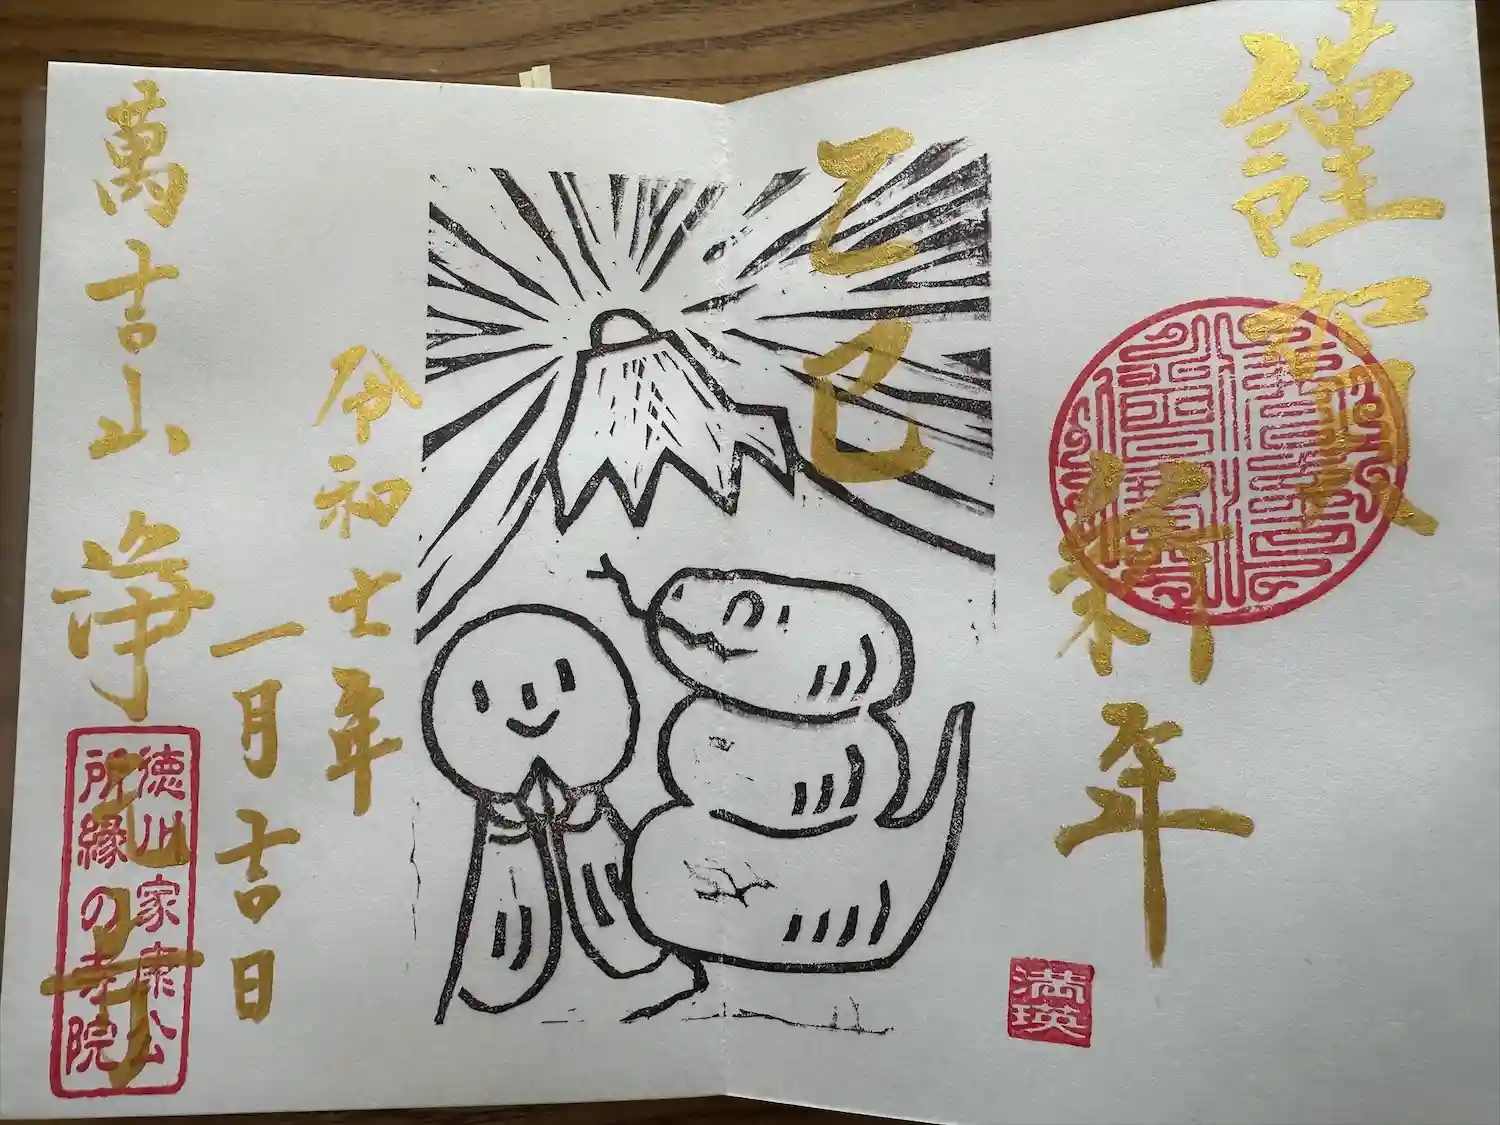 謹賀
新年
満瑛
乙巳
令和七年
一月吉日
萬吉山
浄 寺
徳川家康公
所縁の寺院